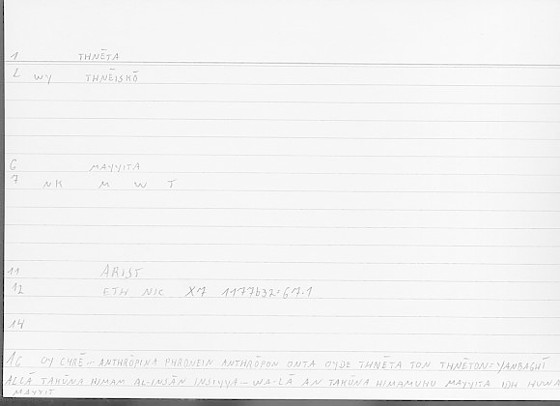 1 THNĒTA
2 WY THNĒISKŌ
6 MAYYITA
7 NK M W T
11 ARIST
12 ETH NIC X7 1177b32:67.1
14
16 OY CHRĒ – ANTHRŌPINA PHRONEIN ANTHRŌPON ONTA OYDE THNĒTA TON THNĒTON: YANBAGHĪ
ALLĀ TAKŪNA HIMAM AL-INSĀN INSIYYA – WA-LĀ AN TAKŪNA HIMAMUHU MAYYITA IDH HUWA
MAYYIT